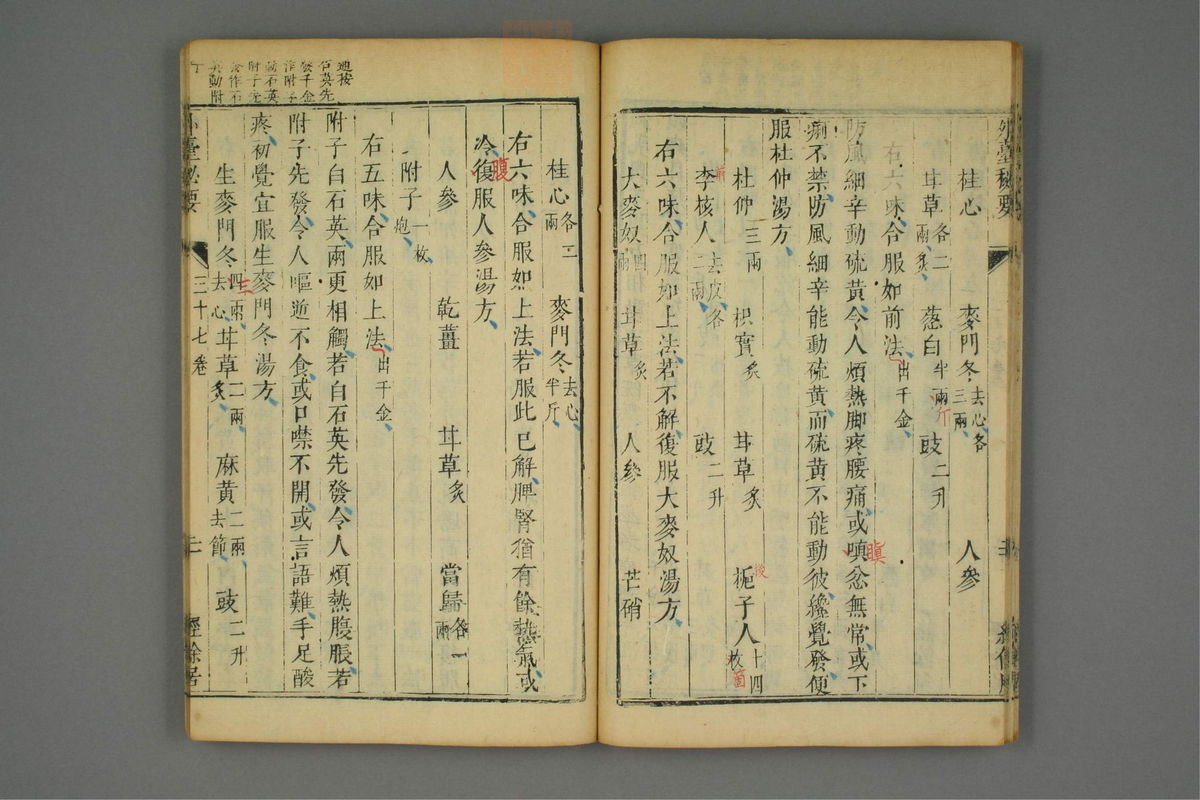 外臺秘要
桂心 麥門冬去心各三兩 人參
甘草各二兩炙 葱白半兩斤 豉二升
右六味合服如前法出千金
防風細辛動硫黃令人煩熱脚疼腰痛或嗔忿無常或下
瞋
痢不禁防風細辛能動硫黃而硫黃不能動彼纔覺發便
服杜仲湯方
杜仲三兩 枳實炙 甘草炙 梔子人十四枚
後
箇
李核人去皮各二兩 豉二升
右六味合服如上法若不解復服大麥奴湯方
大麥奴四兩 甘草炙 人參 芒硝
桂心各二兩 麥門冬去心半斤
右六味合服如上法若服此已解脾腎猶有餘熱氣或
冷復服人參湯方
腹
人參 乾薑 甘草炙 當歸各一兩
附子一枚炮
右五味合服如上法出千金
附子白石英兩更相觸若白石英先發令人煩熱腹脹若
附子先發令人嘔逆不食或口噤不開或言語難手足酸
疼初覺宜服生麥門冬湯方
生麥門冬四兩去心 甘草二兩炙 麻黃二兩去節 豉二升
三
外臺秘要 三十七卷 二 經餘居
石英先
發千金
作附子